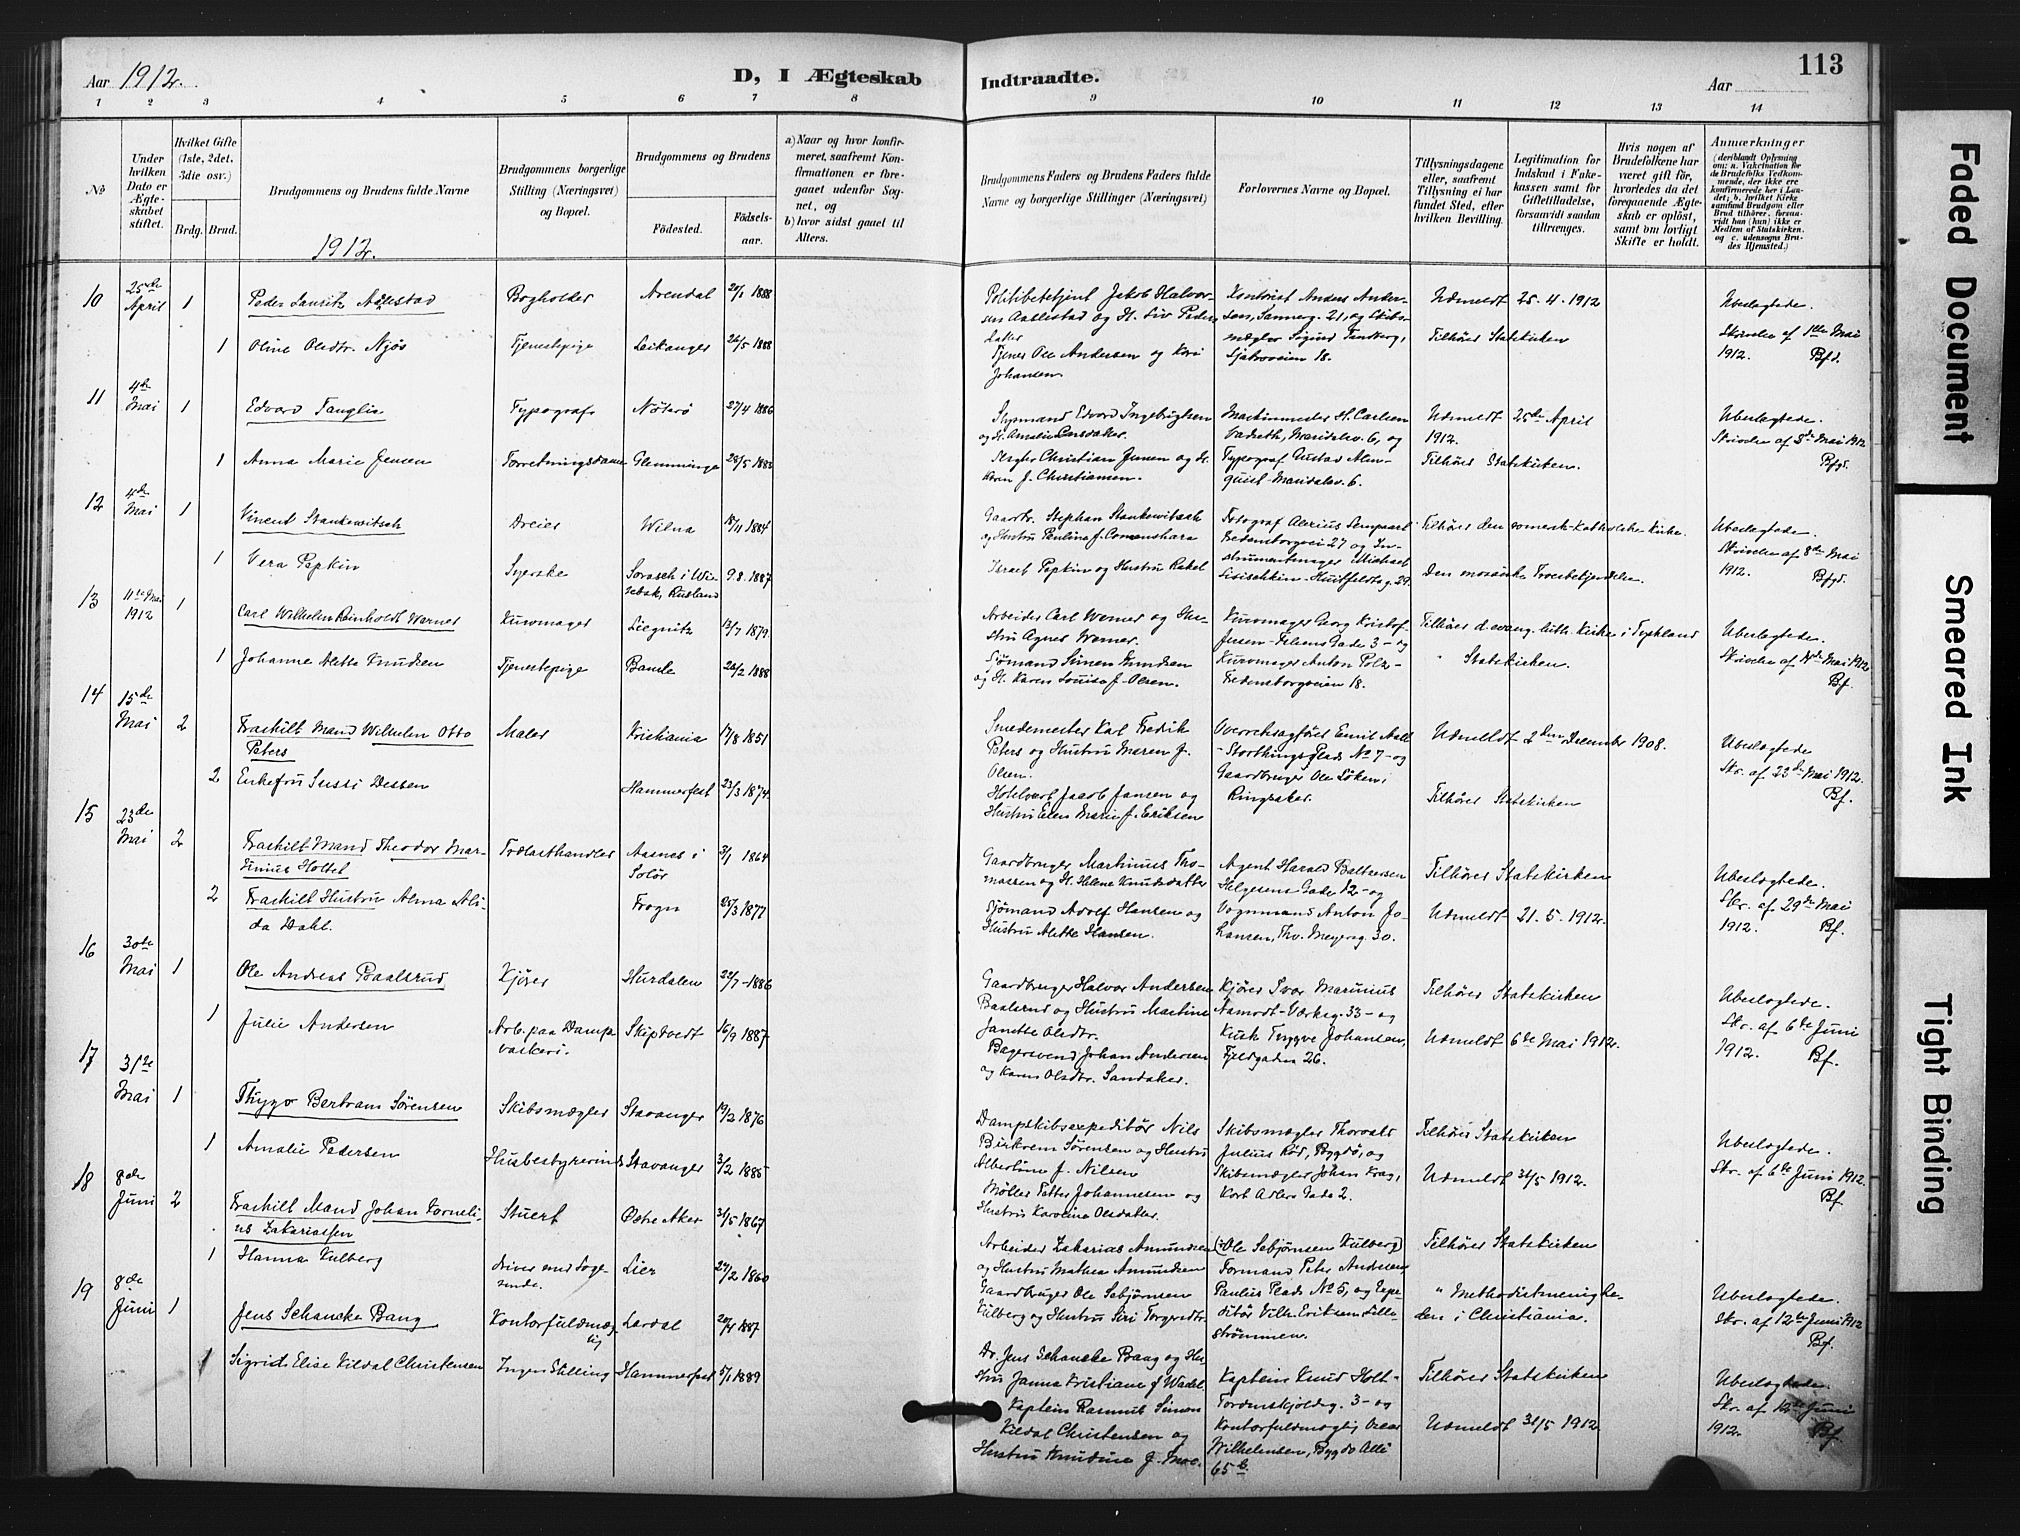 Aar 1912.
D, I Ægteskab
Indtraadte.
113
Aar
1 2 3 4 5 6 7 8 9 10 11 12 13 14
No
Under hvilken Dato er Ægteskabet stiftet.
Hvilket Gifte (1ste, 2det, 3die osv.)
Brdg. Brud.
Brudgommens og Brudens fulde Navne
1912.
Brudgommens borgerlige Stilling (Næringsvei) og Bopæl.
Brudgommens og Brudens
Födested.
Födselsaar.
a) Naar og hvor konfirmeret, saafremt Konfirmationen er foregaaet udenfor Sognet, og
b) hvor sidst gaaet til Alters.
Brudgommens Faders og Brudens Faders fulde Navne og borgerlige Stillinger (Næringsvei)
Forlovernes Navne og Bopæl.
Tillysningsdagene eller, saafremt Tillysning ei har fundet Sted, efter hvilken Bevilling.
Legitimation for Indskud i Fakekassen samt for Giftetilladelse, forsaavidt saadan tiltrænges.
Hvis nogen af Brudefolkene har været gift før, hvorledes da det foregaaende Ægteskab er oplöst, samt om lovligt Skifte er holdt.
Anmærkninger
(deriblandt Oplysning om: a. Vakcination for de Brudefolks Vedkommende, der ikke ere konfirmerede her i Landet; b. hvilket Kirkesamfund Brudgom eller Brud tilhører, forsaavidt han (hun) ikke er Medlem af Statskirken, og c. udensogns Brudes Hjemsted.)
10 25de April 1 Peder Lauritz Aablestad Bogholder Arendal 20/1 1888
Politibetjent Jakob Halvorsen Aablestad og H. Liv Pedersdatter
Kontorist Anders Andersen, Sannerg. 21, og Skibsmægler Sigurd Tandberg,
Udmeldt 25-4-1912
Ubeslægtede.
1 Oline Olsdtr. Njøs Tjenestepige Leikanger 26/5 1888
Tjener Ole Andersen og Kari Johansen.
Tilhører Statskirken
Skrivelse af 1ste Mai 1912. Bfd.
11 4de Mai 1 Edvard Tanglin Typograf Nøterø 27/4 1886
Styrmand Edvard Ingebrigtsen
Maskinmester H. Carlsen
Maridalsv. 6, og
Udmeldt 25de April 1912.
Ubeslægtede
Skrivelse af 8de Mai 1912
Bfgd.
1 Anna Marie Jensen Forretningsdame Glemminge 28/5 1883
Christian Jensen og H. Karen f. Christiansen.
Typograf Gustav Almquist Maridalsv. 6.
Tilhører Statskirken.
12 4de Mai 1 Vincent Stankewitsch Dreier Wilna 18/11 1884
Gaardbr. Stephan Stankewitsch og Hustru Paulina f.
Fotograf
Fredensborgvei 27 og Instrumentmager Michael
Tilhører den romersk-katholske Kirke.
Ubeslægtede.
1 Vera Pepkin Syerske
Rusland 9.8.1887
Israel Pepkin og Hustru Rakel
Huitfeldtsg. 29.
Den mosaiske Troesbekjendelse.
Skrivelse af 8de Mai 1912. Bfgd.
13 11te Mai 1912 1 Carl Wilhelm Reinholdt Werner Kurvmager Liegnitz 13/7 1879.
Arbeider Carl Werner og Hustru Agnes Werner.
Kurvmager Georg Kristoffersen - Gade 3 - og
Tilhører d. evang. luth. Kirke i Tyskland
Ubeslægtede.
1 Johanne Aletta Knudsen Tjenestepige Bamle 26/2 1888
Sjømand Simen Knudsen og H. Karen Louise f. Olsen.
Kurvmager Anton Fredensborgveien 18.
" Statskirken.
Skrivelse af Mai 1912
Bf.
14 15de Mai 2 Fraskilt Mand Wilhelm Otto Peters Maler Kristiania 17/8 1851
Smedemester Karl Fredrik Peters og Hustru Maren f. Olsen.
Overretssagfører Emil
- Storthings Plads No 7 - og
Udmeldt 2den December 1908.
Ubeslægtede
2 Enkefru Sussi Dessen Hammerfest 23/3 1874.
Hotelvert Jacob Jansen og Hustru Ellen Marie f. Eriksen
Gaardbruger Ole Løken i Ringsaker.
Tilhører Statskirken
Skr. af 23de Mai 1912.
Bf.
15 23de Mai 2 Fraskilt Mand Theodor Martinius Holtet Trælasthandler Aasnes i Solør 3/1 1864
Gaardbruger Martinus Thomassen og H. Helene Knudsdatter
Agent Harald Baltzersen Helgesens Gade 12 - og
Tilhører Statskirken
Ubeslægtede.
2 Fraskilt Hustru Alma Alida Dahl. Frogn 25/3 1877
Sjømand Adolf Hansen og Hustru Alette Hansen.
Vognmand Anton Johansen, Thv. Meyersg. 30.
Udmeldt 21.5.1912.
Skr. af 29de Mai 1912. Bf.
16 30te Mai 1 Ole Andreas Baalsrud Kjører Hurdalen 22/7-1886
Gaardbruger Halvor Andersen Baalsrud og Hustru Martine Janette Olsdtr.
Kjører Ivar Marinius Aamodt - Verksg. 33 - og
Tilhører Statskirken
Ubeslægtede.
1 Julie Andersen Arb. paa Dampvaskeri. Skiptvedt 16/9 1887
Bagersvend Johan Andersen og Karen Olsdtr. Sandaker.
Kusk Trygve Johansen, Fjeldgaden 26.
Udmeldt 6te Mai 1912.
Skr. af 6te Juni 1912. Bf.
17 31te Mai 1 Thygo Bertram Sørensen Skibsmægler Stavanger 19/2 1876
Dampskibsexpeditør Nils Birkrem Sørensen og Hustru Albertine f. Nilsen
Skibsmægler Thorvald Julius Rød, Bygdø, og
Tilhører Statskirken
Ubeslægtede.
1 Amalie Pedersen Husbestyrerinde Stavanger 3/2 1885
Møller Petter Johannesen og Hustru Karoline Olsdatter.
Skibsmægler Johan Krag, Kort Adlers Gade 2.
Udmeldt 31/5 1912.
Skr. af 6te Juni 1912.
Bf.
18 8de Juni 2 Fraskilt Mand Johan Cornelius Zakariassen Stuert Østre Aker 31/5 1867
Arbeider Zakarias Amundsen og Hustru Mathea Amundsen
(: Ole Sebjørnsen Kulberg:) Formand Peter Andresen,
Tilhører Statskirken
1 Hanna Kulberg driver med Logerende. Lier 27/2 1860
Gaardbruger Ole Sebjørnsen Kulberg og Hustru Siri Torgersdtr.
Paulus Plads No 5, og Expeditør Vilh. Eriksen Lillestrømmen.
" Methodistmenigheden i Christiania.
Ubeslægtede.
Skr. af 12te Juni 1912
Bf.
19 8de Juni 1 Jens Schancke Bang Kontorfuldmægtig Lardal 20/4 1887
Dr. Jens Schancke Bang og Hustru Janna Kristiane f. Wadel.
Kaptein Knud Holt - Tordenskjoldsg. 3 - og
Tilhører Statskirken
Ubeslægtede.
1 Sigrid Elise Kildal Christensen Ingen Stilling Hammerfest 5/1 1889
Kaptein Rasmus Simon Kildal Christensen og Hustru Knudine f. Moe.
Kontorfuldmægtig Oscar Wilhelmsen, Bygdø Allé 65 b.
Udmeldt 31/5 1912
Skr. af Juni 1912. Bf.
Faded Document
Smeared Ink
Tight Binding